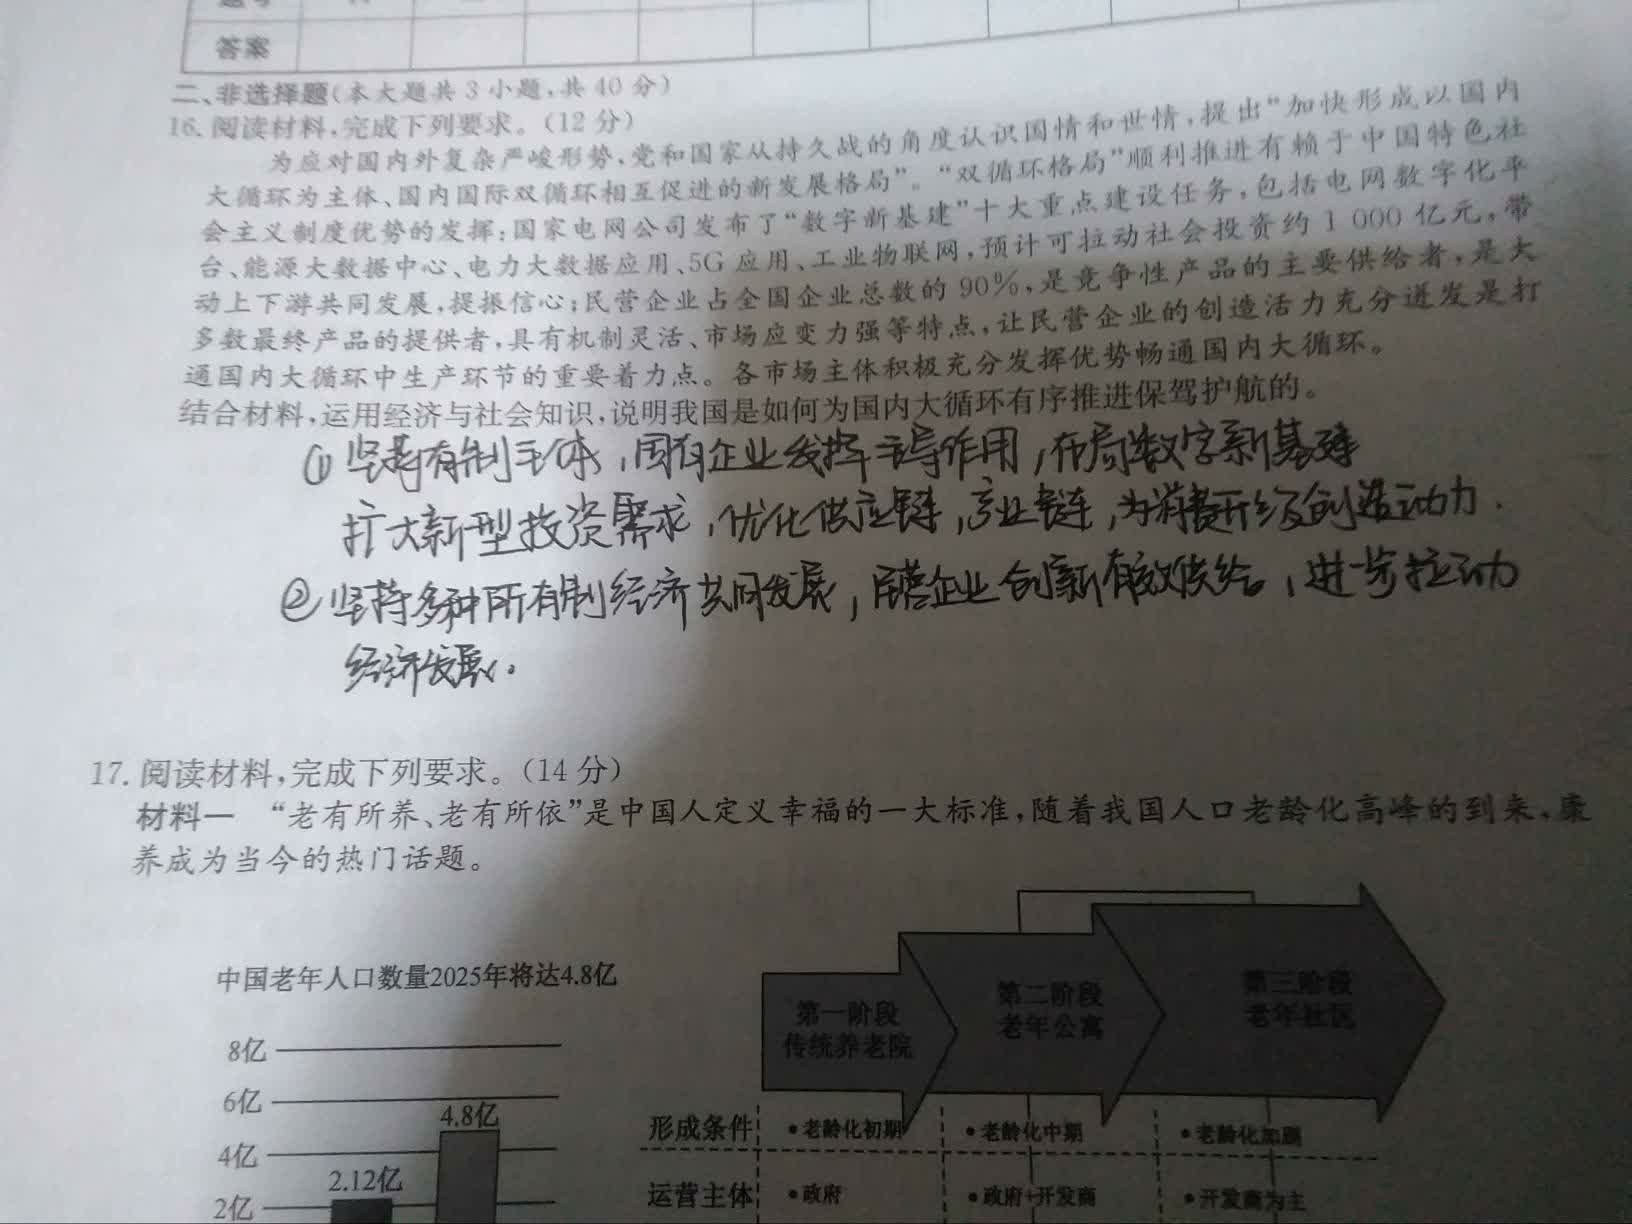 答案
二、非选择题(本大题共3小题,共40分)
16.阅读材料,完成下列要求。(12分)
为应对国内外复杂严峻形势,党和国家从持久战的角度认识国情和世情,提出"加快形成以国内
大循环为主体、国内国际双循环相互促进的新发展格局"。"双循环格局"顺利推进有赖于中国特色社
会主义制度优势的发挥:国家电网公司发布了"数字新基建"十大重点建设任务,包括电网数字化平
台、能源大数据中心、电力大数据应用、5G应用、工业物联网,预计可拉动社会投资约1 000亿元,带
动上下游共同发展,提振信心;民营企业占全国企业总数的90%,是竞争性产品的主要供给者,是大
多数最终产品的提供者,具有机制灵活、市场应变力强等特点,让民营企业的创造活力充分迸发是打
通国内大循环中生产环节的重要着力点。各市场主体积极充分发挥优势畅通国内大循环。
结合材料,运用经济与社会知识,说明我国是如何为国内大循环有序推进保驾护航的。
①坚持有制主体,国有企业发挥主导作用,布局数字新基建
扩大新型投资需求,优化供应链,产业链,为消费升级创造动力.
②坚持多种所有制经济共同发展,民营企业创新有效供给,进一步拉动
经济发展.
17.阅读材料,完成下列要求。(14分)
材料一 "老有所养、老有所依"是中国人定义幸福的一大标准,随着我国人口老龄化高峰的到来,康
养成为当今的热门话题。
中国老年人口数量2025年将达4.8亿
8亿
6亿
4亿
2亿
4.8亿
2.12亿
第一阶段
传统养老院
第二阶段
老年公寓
第三阶段
老年社区
形成条件 •老龄化初期 •老龄化中期 •老龄化加剧
运营主体 •政府 •政府+开发商 •开发商为主